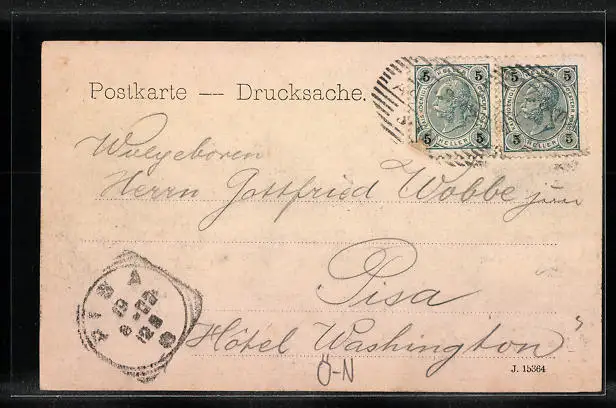 Postkarte — Drucksache.
5 5
HELLER
5 5
5 5
HELLER
5 5
Wolgeboren
Herrn Gottfried Wobbe junr
Pisa
Hôtel Washington
PISA
Ö-N
J. 15364